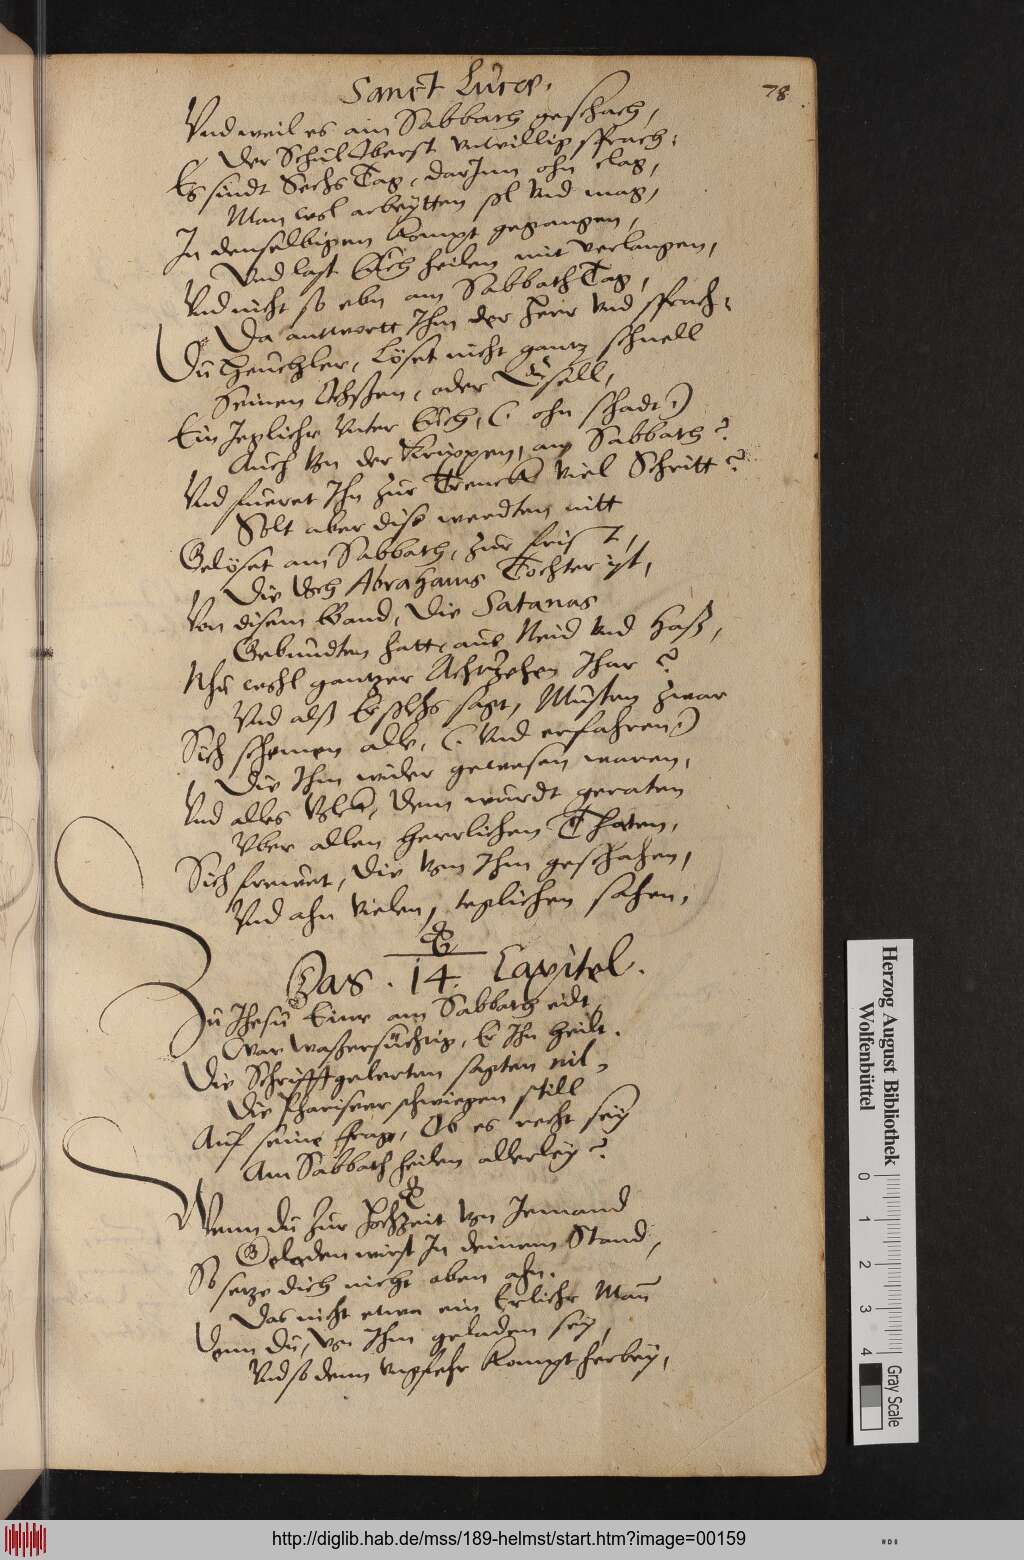 Sanct Lucæ.
78
Vnd weil es am Sabbath geschach,
Der Schul Oberst vnwillig sprach:
Es sindt Sechs Tag, darJnn ohn clag,
Man wol arbeytten sol Vnd mag,
In denselbigen kompt gegangen,
Vnd last Euch heilen mit verlangen,
Vnd nicht so ebn am Sabbath Tag,
Da antwortt Ihm der Herr Vnd sprach:
Du Heuchler, Löset nicht gantz schnell
Seinen Ochssen, oder Esell,
Ein Jeglicher Vnter Euch, (ohn schadt)
Auch Von der Krippen, am Sabbath?
Vnd fueret Ihn zur Trenck Viel Schritt?
Solt aber dise werdten nitt
Gelöset am Sabbath, zur frist,
Die doch Abrahams Tochter ist,
Von disem Band, Die Satanas
Gebundten hatt, aus Neid Vnd Haß,
Nhu wohl gantzer Achtzehen Jhar?
Vnd alß Er solchs sagt, Musten zwar
Sich schemen alle, (Vnd erfahren)
Die Ihm wider gewesen waren,
Vnd alles Volck, dem wurdt geraten
Vber allen Herrlichen Thaten,
Sich frewet, Die Von Ihm geschahen,
Vnd ahn Vielen, teglichen sahen.
Das .14. Capitel.
Zu Jhesu Einer am Sabbath eilt,
War waßersüchtig, Er Ihn heilt.
Die Schrifftgelerten sagten nil,
Die Phariseer schwiegen still
Auf seine frage, Ob es recht sey
Am Sabbath heilen allerley?
Wenn du zur Hochzeit Von Jemand
Geladen wirst In deinem Stand,
So setze dich nicht oben ahn.
Das nicht etwa ein Erlicher Man
Denn du, Von Ihm geladen sey,
Vnd so denn vngfehr kompt herbey,
Herzog August Bibliothek
Wolfenbüttel
0 1 2 3 4
Gray Scale
http://diglib.hab.de/mss/189-helmst/start.htm?image=00159